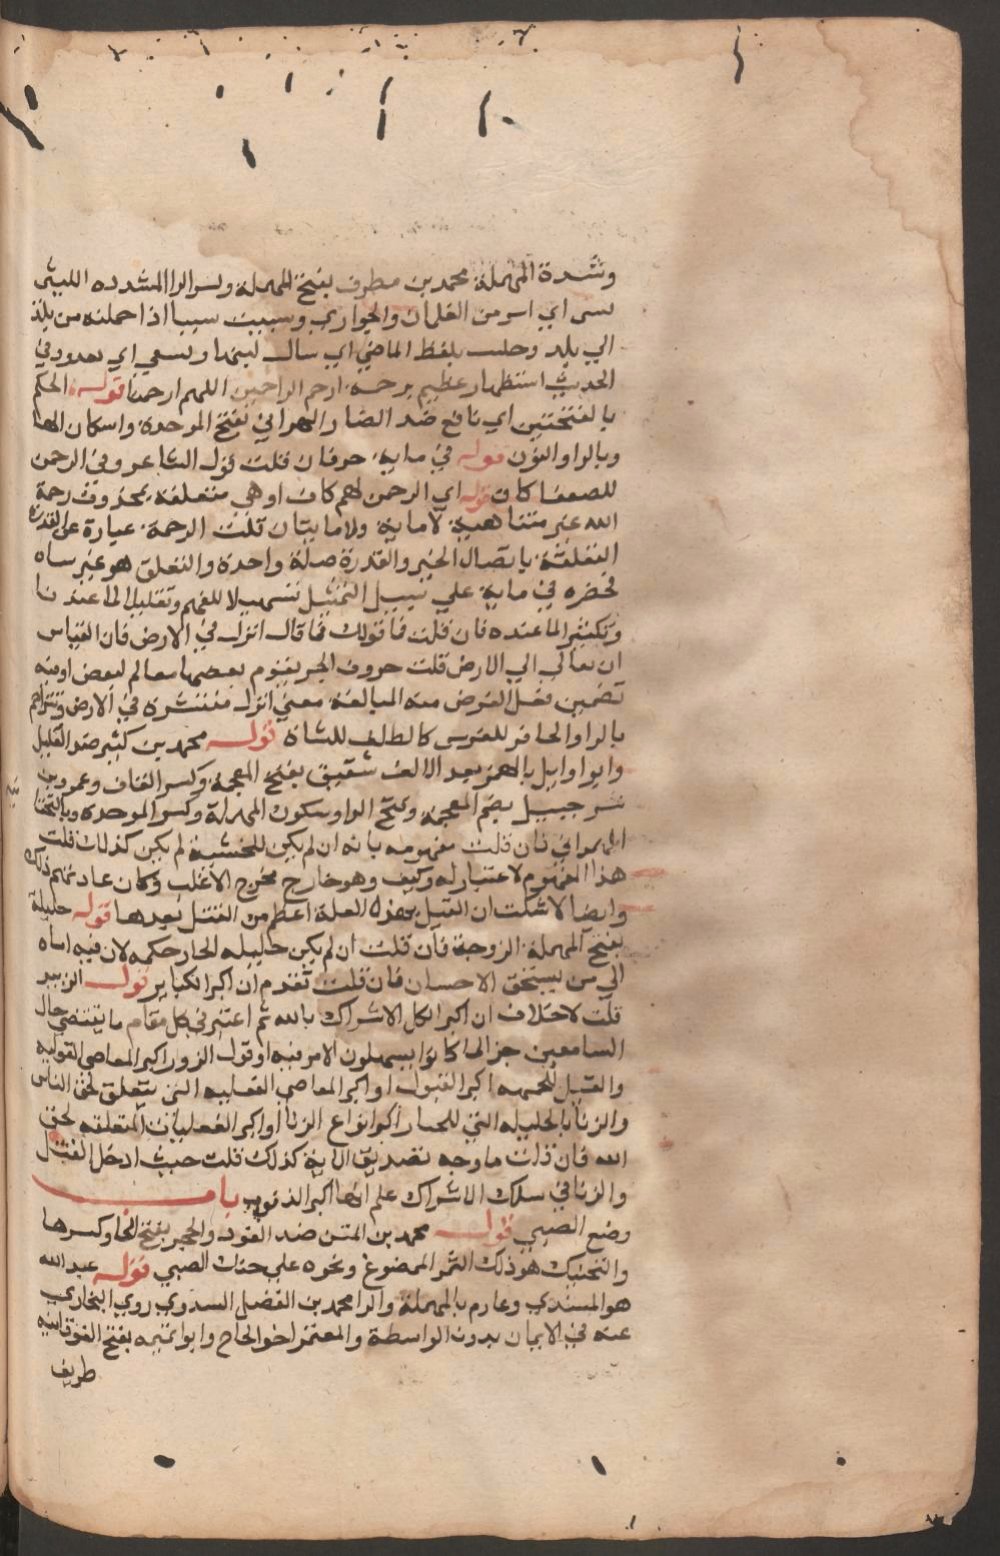 وشدة المهملة محمد بن مطرف بفتح المهملة وكسر الراء المشدده الليثى
سبى اي اسر من الغلمان والجواري وسبيت سبيا اذا حملته من بلد
الي بلد وحلب بلفظ الماضي اي سال لبنها وتسعي اي تعدو وفي
الحديث استظهار عظيم برحمة ارحم الراحمين اللهم ارحمنا قوله الحكم
بالفتحتين اي نافع ضد الضار والبهراني بفتح الموحدة واسكان الها
وبالراء والنون قوله في ماية جزء فان قلت قول الشاعر وفي الرحمن
للضعفا كاف قوله اي الرحمن لهم كاف او هي متعلقة بمحذوف رحمة
الله غير متناهية لا ماية ولا مايتان قلت الرحمة عبارة عن القدرة
المتعلقة بايصال الخير والقدرة صفة واحدة والتعلق هو غير متناه
فحصره في ماية علي سبيل التمثيل تسهيلا للفهم وتقليلا لما عندنا
وتكثيرا لما عنده فان قلت فما قولك فما قال انزل في الارض فان القياس
ان يقال الي الارض قلت حروف الجر يقوم بعضها مقام بعض او فيه
تضمين فعل الغرض منه المبالغة معني انزل منتشرة في الارض وتتراحم
بالراء والحافر للفرس كالظلف للشاة قوله محمد بن كثير ضد القليل
وابو وايل بالهمز بعد الالف شقيق بفتح المعجمة وكسر القاف وعمرو بن
شرحبيل بضم المعجمة وفتح الراء وسكون المهملة وكسر الموحدة وبالتحتا
الهمداني فان قلت مفهومه بانه ان لم يكن للخشية لم يكن كذلك قلت
هذا المفهوم لا اعتبار له وكيف وهو خارج مخرج الاغلب وكان عادتهم ذلك
وايضا لا شكت ان القتل بهذه العلة اعظم من القتل بغيرها قوله حليلة
بفتح المهملة الزوجة فان قلت ان لم يكن حليلة الجار حكمه لان فيه اساه
الي من يستحق الاحسان فان قلت تقدم ان اكبر الكباير قول الزور
قلت لا خلاف ان اكبر الكل الاشراك بالله ثم اعتبر في كل مقام ما يقتضي حال
السامعين جزالما كانوا يسهلون الامر فيه او قول الزور اكبر المعاصي القوليه
والقتل للخشيه اكبر القتول او اكبر المعاصي الفعليه التي تتعلق بحق الناس
والزنا بالحليله التي للجار اكبر انواع الزنا او اكبر الفعليات المتعلقه بحق
الله فان قلت ما وجه تصديق الاية كذلك قلت حيث ادخل القتل
والزنا في سلك الاشراك علم انها اكبر الذنوب باب
وضع الصبي قوله محمد بن المثنى ضد الفرد والحجر بفتح الحا وكسرها
والتحنيك هو ذلك التمر الممضوغ ونحوه علي حنك الصبي قوله عبد الله
هو المسندي وعارم بالمهملة والرا محمد بن الفضل السدوسي روي البخاري
عنه في الايمان بدون الواسطة والمعتمر اخو الحاج وابو تميمه بفتح الفوقانيه
طريف